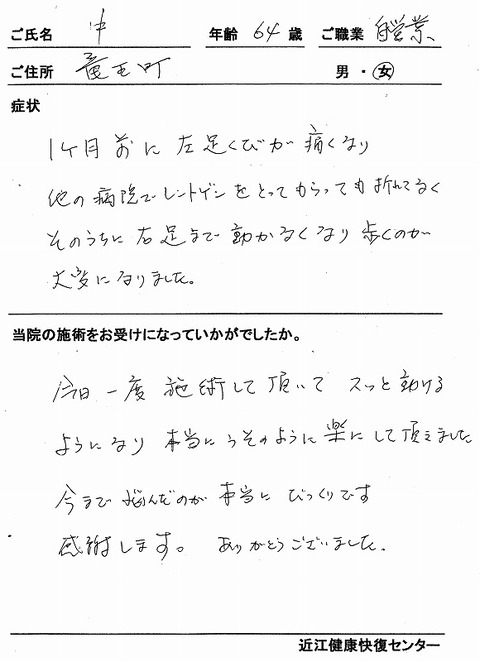 ご氏名 中 年齢 64 歳 ご職業 自営業
ご住所 竜王町 男 ・ 女
症状
1ケ月前に左足くびが痛くなり
他の病院でレントゲンをとってもらっても折れてなく
そのうちに右足まで動かなくなり歩くのが
大変になりました。
当院の施術をお受けになっていかがでしたか。
今日一度施術して頂いてスッと動ける
ようになり本当にうそのように楽にして頂えました
今まで悩んだのが本当にびっくりです
感謝します。ありがとうございました.
近江健康快復センター